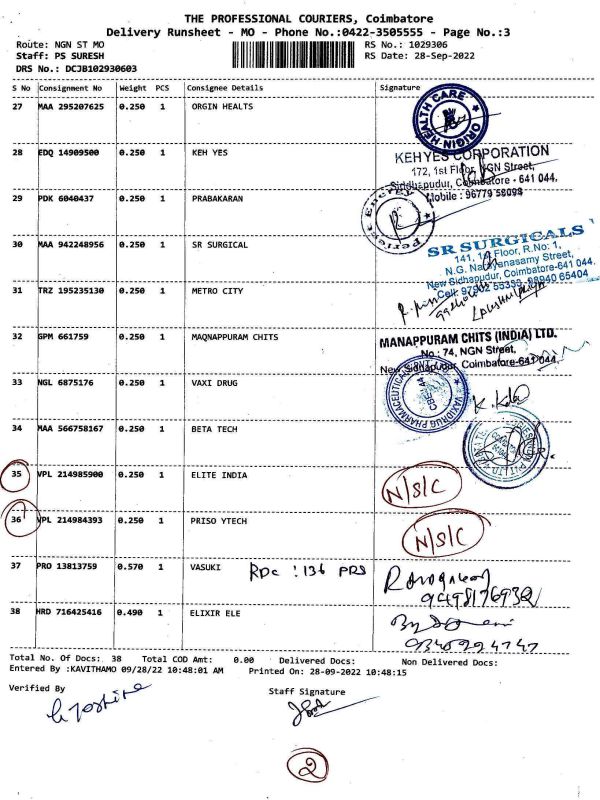 THE PROFESSIONAL COURIERS, Coimbatore
Delivery Runsheet - MO - Phone No.:0422-3505555 - Page No.:3
Route: NGN ST MO
RS No.: 1029306
Staff: PS SURESH
RS Date: 28-Sep-2022
DRS No.: DCJB102930603
S No Consignment No Weight PCS Consignee Details Signature
27 MAA 295207625 0.250 1 ORGIN HEALTS
ORIGIN HEALTH CARE
28 EDQ 14909500 0.250 1 KEH YES
KEHYES CORPORATION
172, 1st Floor, NGN Street,
Siddhapudur, Coimbatore - 641 044.
Mobile : 96779 58098
29 PDK 6040437 0.250 1 PRABAKARAN
30 MAA 942248956 0.250 1 SR SURGICAL
SR SURGICALS
141, 1st Floor, R.No: 1,
N.G. Narayanasamy Street,
New Sidhapudur, Coimbatore-641 044.
31 TRZ 195235130 0.250 1 METRO CITY
32 GPM 661759 0.250 1 MAQNAPPURAM CHITS
MANAPPURAM CHITS (INDIA) LTD.
No : 74, NGN Street,
New Sidhapudur, Coimbatore-641 044.
33 NGL 6875176 0.250 1 VAXI DRUG
34 MAA 566758167 0.250 1 BETA TECH
35 VPL 214985900 0.250 1 ELITE INDIA
N/S/C
36 VPL 214984393 0.250 1 PRISO YTECH
N/S/C
37 PRO 13813759 0.570 1 VASUKI
38 HRD 716425416 0.490 1 ELIXIR ELE
Total No. Of Docs: 38 Total COD Amt: 0.00 Delivered Docs: Non Delivered Docs:
Entered By :KAVITHAMO 09/28/22 10:48:01 AM Printed On: 28-09-2022 10:48:15
Verified By
Staff Signature
2